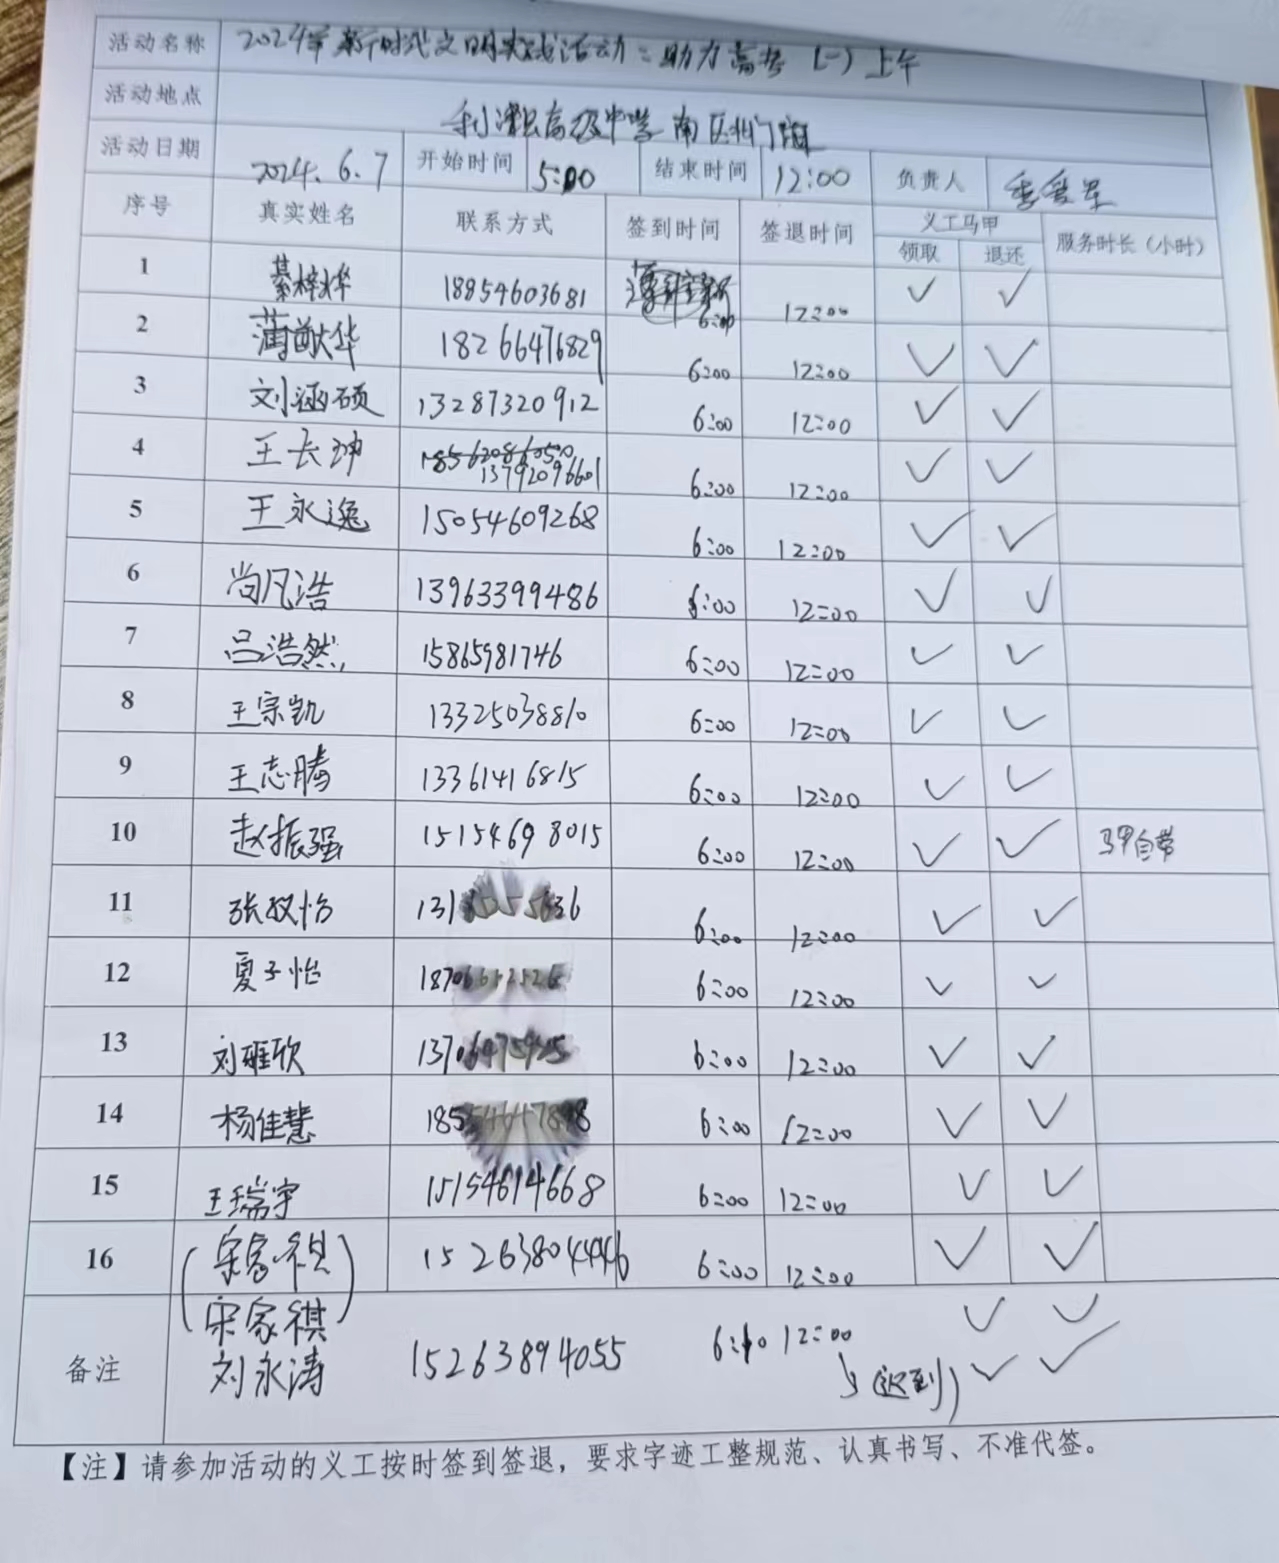 活动名称 2024年新时代文明实践活动：助力高考（一）上午
活动地点 利津县高级中学南区北门
活动日期 2024.6.7 开始时间 5:00 结束时间 12:00 负责人
序号 真实姓名 联系方式 签到时间 签退时间 义工马甲 服务时长（小时）
领取 退还
1 綦梓烨 18854603681 6:00 12:00 ✓ ✓
2 薄敬华 18266476829 6:00 12:00 ✓ ✓
3 刘涵硕 13287320912 6:00 12:00 ✓ ✓
4 王长珅 13792096601 6:00 12:00 ✓ ✓
5 王永逸 15054609268 6:00 12:00 ✓ ✓
6 尚凡浩 13963399486 6:00 12:00 ✓ ✓
7 吕浩然 15865981746 6:00 12:00 ✓ ✓
8 王宗凯 13325038810 6:00 12:00 ✓ ✓
9 王志腾 13361416815 6:00 12:00 ✓ ✓
10 赵振强 15154698015 6:00 12:00 ✓ ✓ 马甲自带
11 张致怡 6:00 12:00 ✓ ✓
12 夏子怡 6:00 12:00 ✓ ✓
13 刘雅欣 6:00 12:00 ✓ ✓
14 杨佳慧 6:00 12:00 ✓ ✓
15 王瑞宇 15154614668 6:00 12:00 ✓ ✓
16 (宋家祺 6:00 12:00 ✓ ✓
宋家祺) ✓ ✓
备注 刘永涛 15263894055 6:10 12:00 (迟到) ✓ ✓
【注】请参加活动的义工按时签到签退，要求字迹工整规范、认真书写、不准代签。